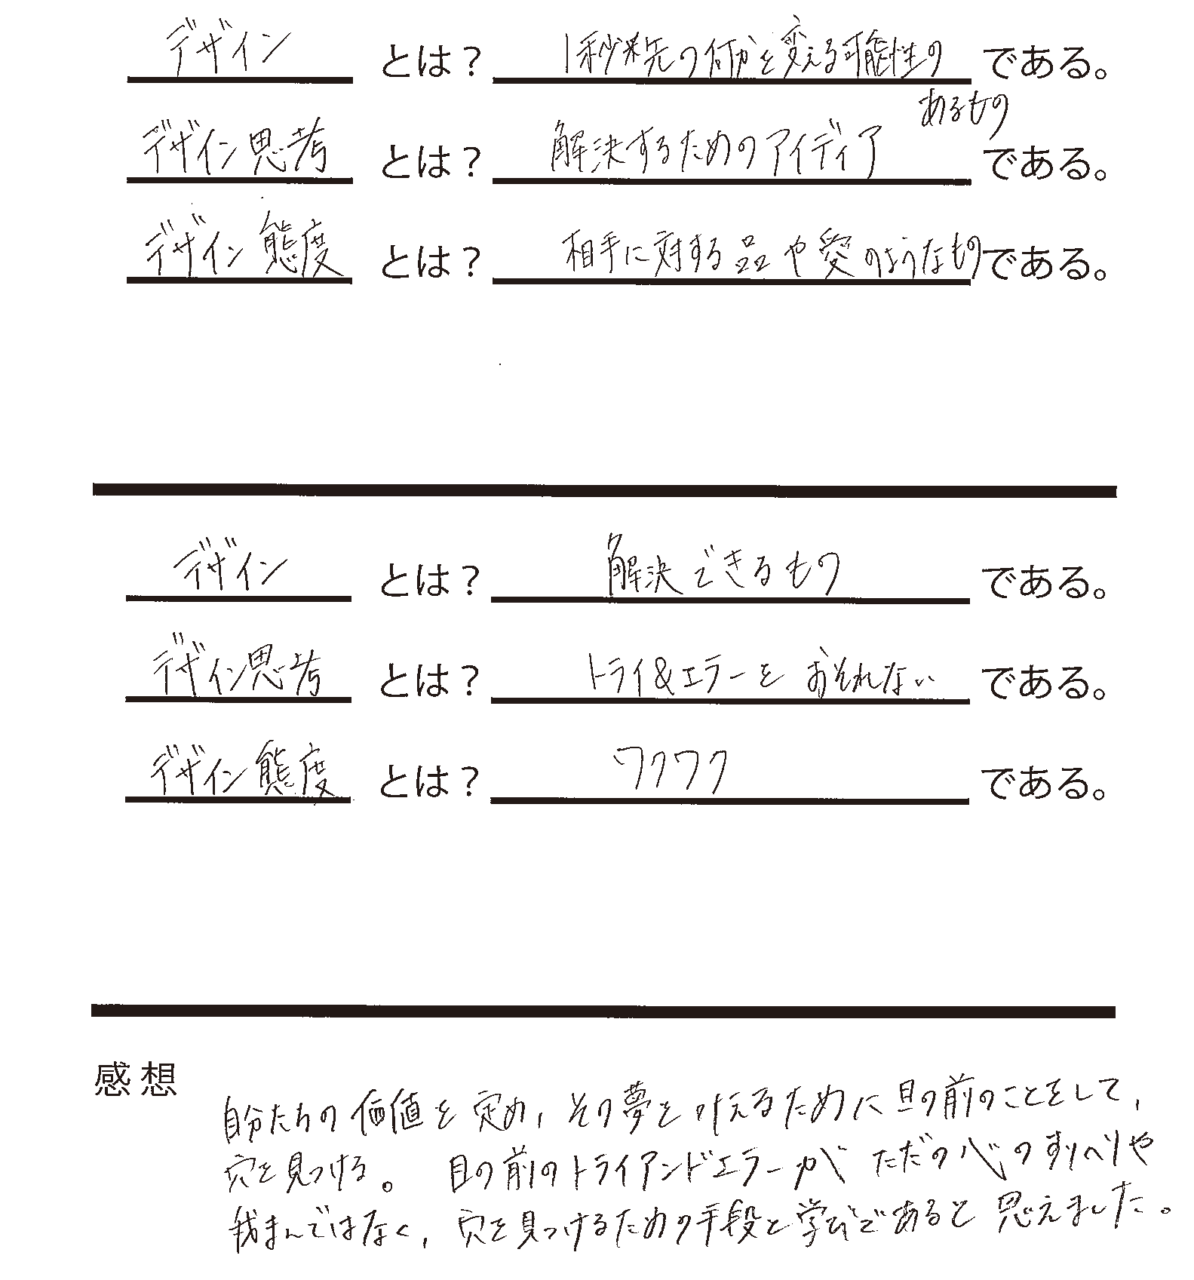 デザイン とは？ 1秒先の何かを変える可能性の である。
あるもの
デザイン思考 とは？ 解決するためのアイディア である。
デザイン態度 とは？ 相手に対する品や愛のようなもの である。
デザイン とは？ 解決できるもの である。
デザイン思考 とは？ トライ&エラーを おそれない である。
デザイン態度 とは？ ワクワク である。
感想
自分たちの価値を定め、その夢を叶えるために目の前のことをして、
穴を見つける。 目の前のトライアンドエラーが ただの心のすりへりや
我まんではなく、穴を見つけるための手段と学びであると思えました。